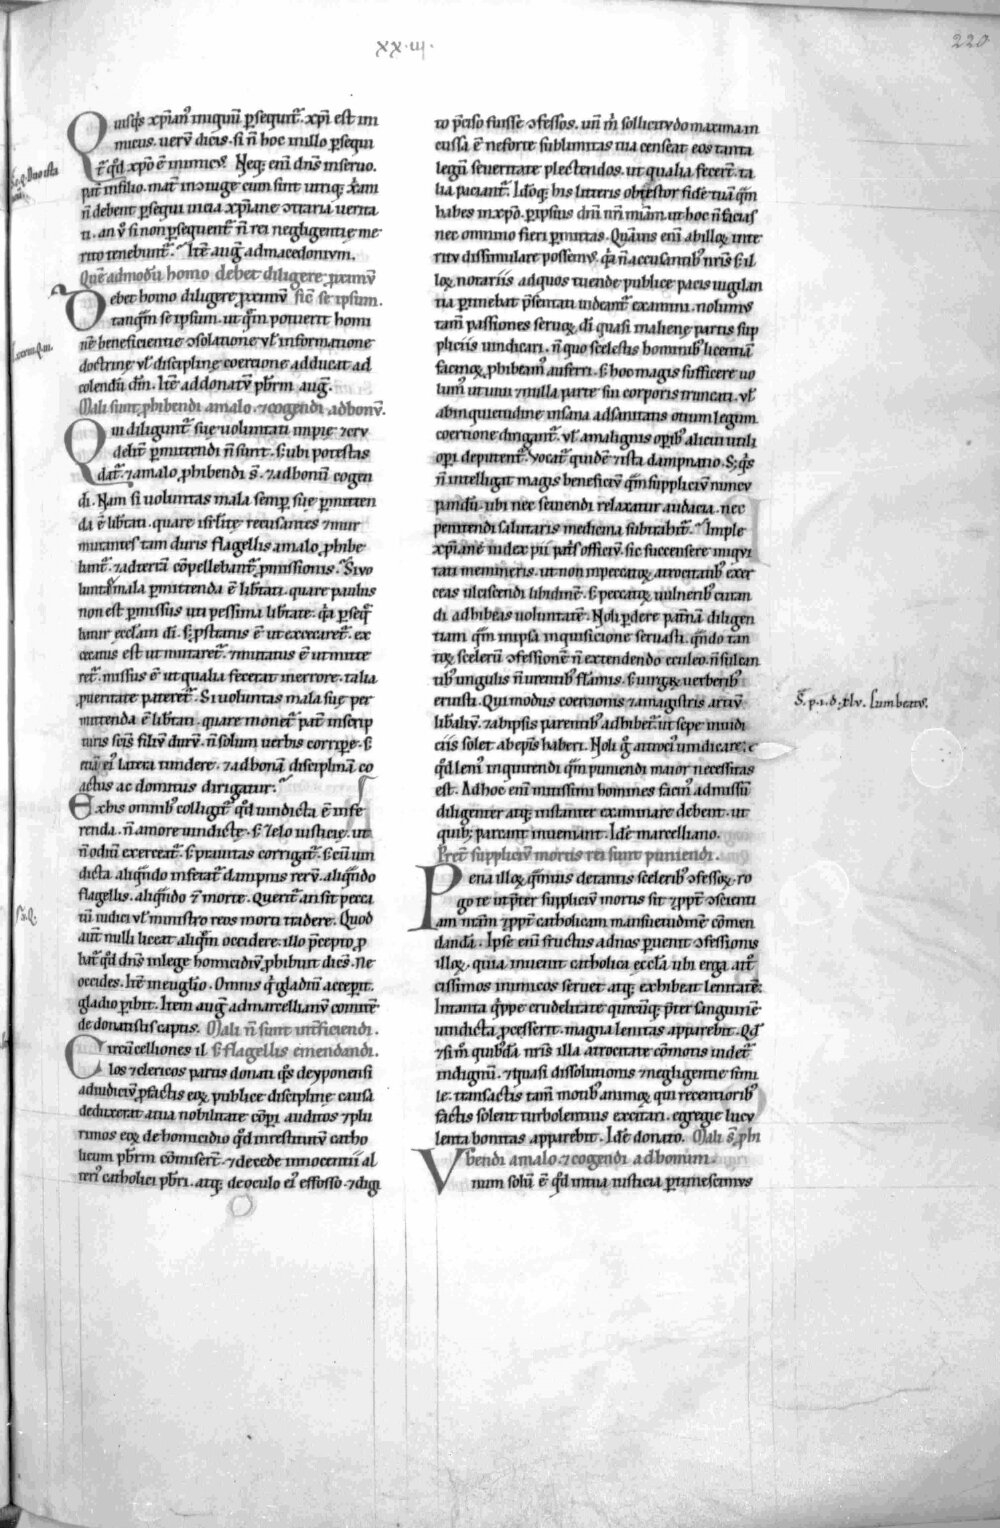 XX·III·
220
Quisq̃s xp̃ian᷒ iniquũ p̱sequit̃. xp̃i est ini
micus. uerũ dicis. si ñ hoc in illo p̱sequi
t̃ qđ xp̃o ẽ inimicũ. Neq; enĩ dñs in seruo.
pat̃ in filio. marit᷒ in coniuge cum sint utriq; x̃iani
ñ debent p̱sequi in ea xp̃iane ↄtraria uerita
ti. an ũ si non p̱sequent̃ ñ rei negligentię me
rito tenebunt̃. Itẽ aug̃ ad macedonium.
Quẽadmodũ homo debet diligere ꝓximũ
Debet homo diligere ꝓximũ sic̃ se ipsum.
tanq̃m se ipsum. ut q̃m potuerit homi
nẽ beneficientię ↄsolatione ul̃ informatione
doctrinę ul̃ disciplinę coercione adducat ad
colendũ dm̃. Itẽ ad donatũ pb̃rm aug̃.
Mali sunt ꝓhibendi a malo. ⁊ cogendi ad bonũ.
Qui diligunt̃ suę uoluntati impie ⁊ cru
delit̃ p̱mittendi ñ sunt. s; ubi potestas
dat̃. ⁊ a malo ꝓhibendi s̃. ⁊ ad bonũ cogen
di. Nam si uoluntas mala semp̱ suę p̱mitten
da ẽ lib̃tati. quare isrl̃itę recusantes ⁊ mur
murantes tam duris flagellis a malo ꝓhibe
bant̃. ⁊ ad terrã cõpellebant̃ ꝓmissionis. Si uo
luntas mala p̱mittenda ẽ lib̃tati. quare paulus
non est p̱missus uti pessima lib̃tate. q̃ p̱seq̃
batur eccl̃am dĩ. s; ꝓstratus ẽ ut excecaret̃. ex
cecatus est ut mutaret̃. ⁊ mutatus ẽ ut mitte
ret̃. missus ẽ ut qualia fecerat in errore. talia
ꝓ ueritate pateret̃. Si uoluntas mala suę per
mittenda ẽ lib̃tati. quare monet̃ pat̃ in scrip
turis sc̃is filiũ durũ. ñ solum uerbis corripe. s;
etiã ei᷒ latera tundere. ⁊ ad bonã disciplinã co
actus ac domitus dirigatur.
Ex his omnib᷒ colligit̃ qđ uindicta ẽ infe
renda. ñ amore uindictę. s; zelo iusticię. ut
ñ odiũ exerceat̃. s; prauitas corrigat̃. s; cũ uin
dicta aliqñdo inferat̃ dampnis rerũ. aliqñdo
flagellis. aliqñdo ⁊ morte. Querit̃ an sit pecca
tũ iudici ul̃ ministro reos morti tradere. Quod
aut̃ nulli liceat aliq̃m occidere. illo p̃cepto ꝓ
bat̃ qđ dñs in lege homicidiũ ꝓhibuit dices̃. Ne
occides. Itẽ in euuglĩo. Omnis q̃ gladiũ acceperit.
gladio p̱ibit. Item aug̃ ad marcellianũ comitẽ
de donatistis captis. Mali ñ sunt int̃ficiendi.
Circũcelliones il s; flagellis emendandi.
los ⁊ clericos partis donati q̃s de yponensi
ad iudiciũ ꝓ factis eoꝝ publicę disciplinę causa
deduxerat a tua nobilitate cõp̱i auditos ⁊ plu
rimos eoꝝ de homicidio qđ in restitutũ catho
licum pb̃rm cõmisert̃. ⁊ de cede innocentii al
teri᷒ catholici pb̃ri. atq; de oculo ei᷒ effosso. ⁊ digi
to p̃ciso fuisse ↄfessos. uñ m̃ sollicitudo maxima in
cussa ẽ ne forte sublimitas tua censeat eos tanta
legũ seueritate plectendos. ut qualia fecert̃. ta
lia paciant̃. Idoq; his litteris obtestor fidẽ tuã q̃m
habes in xp̃o. p̱ ipsius dñi nr̃i miãm. ut hoc ñ facias
nec omnino fieri p̱mittas. Quãuis enĩ ab illoꝝ inte
ritu dissimulare possemus. q̃ ñ accusantib᷒ nr̃is s; il
loꝝ notariis ad quos tuendę publicę pacis uigilan
tia p̱tinebat p̃sentati uideant̃ examini. nolumus
tam̃ passiones seruoꝝ dĩ quasi malienę partis sup
pliciis uindicari. ñ quo scelestis hominib᷒ licentiã
facinoꝝ ꝓhibeam᷒ auferri. s; hoc magis sufficere uo
lum᷒ ut uiui ⁊ nulla parte sui corporis truncati. ul̃
ab inquietudine insana ad sanitatis otium legum
coercione dirigant̃. ul̃ a malignis op̱ib᷒ alicui utili
op̱i deputent̃. uocat̃ quidẽ ⁊ ista dampnatio. s; q̃s
ñ intelligat magis beneficiũ q̃m suppliciũ nuncu
pandũ. ubi nec seuiendi relaxatur audacia. nec
penitendi salutaris medicina subtrahit̃. Imple
xp̃iane iudex pii pat̃s officiũ. sic succensere iniqui
tati memineris. ut non in peccatoꝝ atrocitatib᷒ exer
ceas ulciscendi libidinẽ. s; peccatoꝝ uulnerib᷒ curan
di adhibeas uoluntatẽ. Noli p̱dere pat̃nã diligen
tiam q̃m in ipsa inquisicione seruasti. qñdo tan
toꝝ scelerũ ↄfessionẽ ñ extendendo eculeo. ñ sulcan
tib᷒ ungulis ñ urentib᷒ flãmis. s; uirgaꝝ uerberib᷒
eruisti. Qui modus coercionis ⁊ a magistris artiũ
lib̃aliũ. ⁊ ab ipsis parentib᷒ adhibet̃. ut sepe in iudi
ciis solet ab ep̃is haberi. Noli g̊ atroci᷒ uindicare.
qđ leni᷒ inquirendi q̃m puniendi maior necessitas
est. Ad hoc enĩ mitissimi homines facin᷒ admissũ
diligenter atq; instanter examinare debent. ut
quib; parcant inueniant. Idẽ marcelliano.
Pret̃ suppliciũ mortis rei sunt puniendi.
Pena illoꝝ q̃muis de tantis sclerib᷒ ↄfessoꝝ. ro
go te ut p̃ter suppliciũ mortis sit ⁊ ꝓpt̃ ↄscienti
am nr̃am ⁊ ꝓpt̃ catholicam mansuetudinẽ cõmen
dandã. Ipse enĩ fructus ad nos p̱uenit ↄfessionis
illoꝝ. quia inuenit catholica eccl̃a ubi erga atr̃
cissimos inimicos seruet atq; exhibeat lenitatẽ.
In tanta q̃ppe crudelitate quicũq; p̃ter sanguinẽ
uindicta ꝓcesserit. magna lenitas apparebit. Qđ
⁊ si m̃ quib᷒dã nr̃is illa atrocitate cõmotis uidet̃
indignũ. ⁊ quasi dissolutionis ⁊ negligentię simi
le. transactis tam̃ motib᷒ animoꝝ qui recentiorib᷒
factis solent turbolentius excitari. egregie lucu
lenta bonitas apparebit. Idẽ donato. Mali s̃ ꝓhi
bendi a malo. ⁊ cogendi ad bonum.
Vnum solũ ẽ qđ in tua iusticia p̱timescimus
S̃. p. i. d. xlv. sunt beatus.